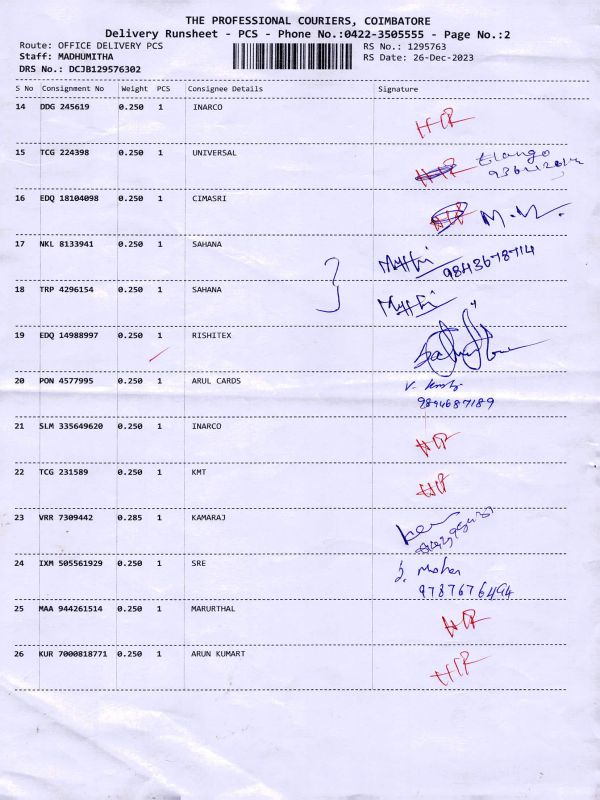 THE PROFESSIONAL COURIERS, COIMBATORE
Delivery Runsheet - PCS - Phone No.:0422-3505555 - Page No.:2
Route: OFFICE DELIVERY PCS RS No.: 1295763
Staff: MADHUMITHA RS Date: 26-Dec-2023
DRS No.: DCJB129576302
S No Consignment No Weight PCS Consignee Details Signature
14 DDG 245619 0.250 1 INARCO
15 TCG 224398 0.250 1 UNIVERSAL Elango
16 EDQ 18104098 0.250 1 CIMASRI
17 NKL 8133941 0.250 1 SAHANA 9843678714
18 TRP 4296154 0.250 1 SAHANA
19 EDQ 14988997 0.250 1 RISHITEX
20 PON 4577995 0.250 1 ARUL CARDS
9894687189
21 SLM 335649620 0.250 1 INARCO
22 TCG 231589 0.250 1 KMT
23 VRR 7309442 0.285 1 KAMARAJ
24 IXM 505561929 0.250 1 SRE Mohan
9787676494
25 MAA 944261514 0.250 1 MARURTHAL
26 KUR 7000818771 0.250 1 ARUN KUMART